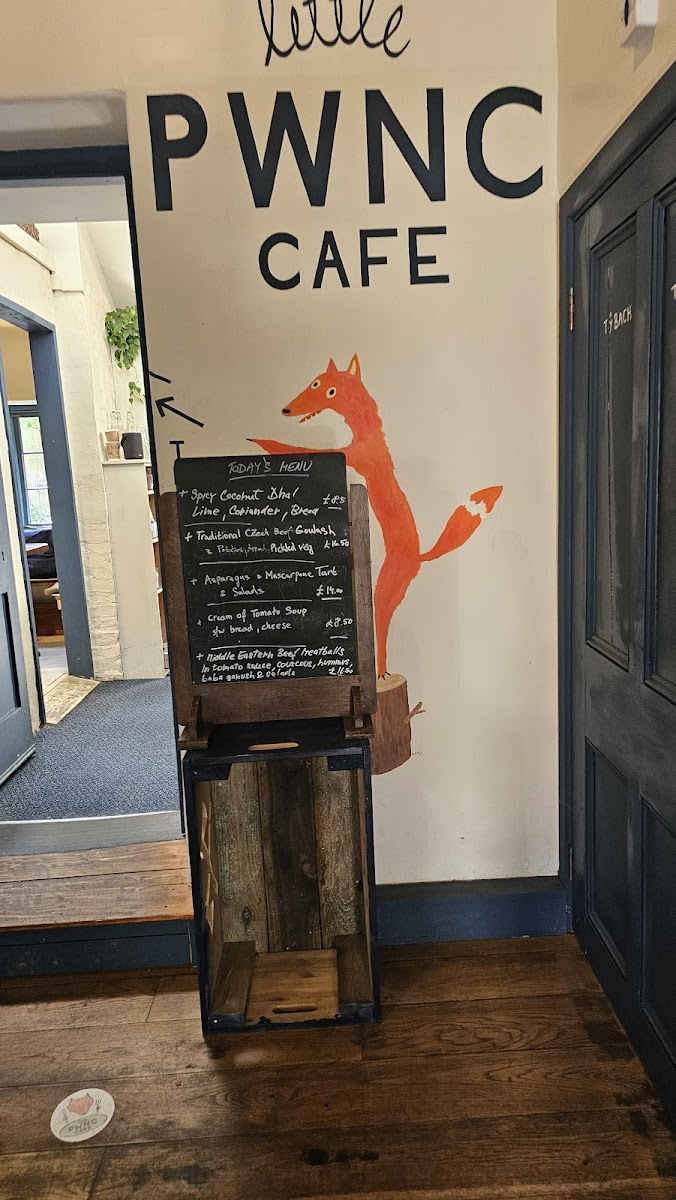 little
PWNC
CAFE
TŶ BACH
TODAY'S MENU
+ Spicy Coconut Dhal
Lime, Coriander, Bread
£8.5
+ Traditional Czech Beef Goulash
Pickled veg £16.50
+ Asparagus & Mascarpone Tart
& Salads £14.00
+ Cream of Tomato Soup
s/w bread, cheese £8.50
+ Middle Eastern Beef Meatballs
in tomato sauce, couscous, hummus,
baba ganush & salads £16.50
PWNC